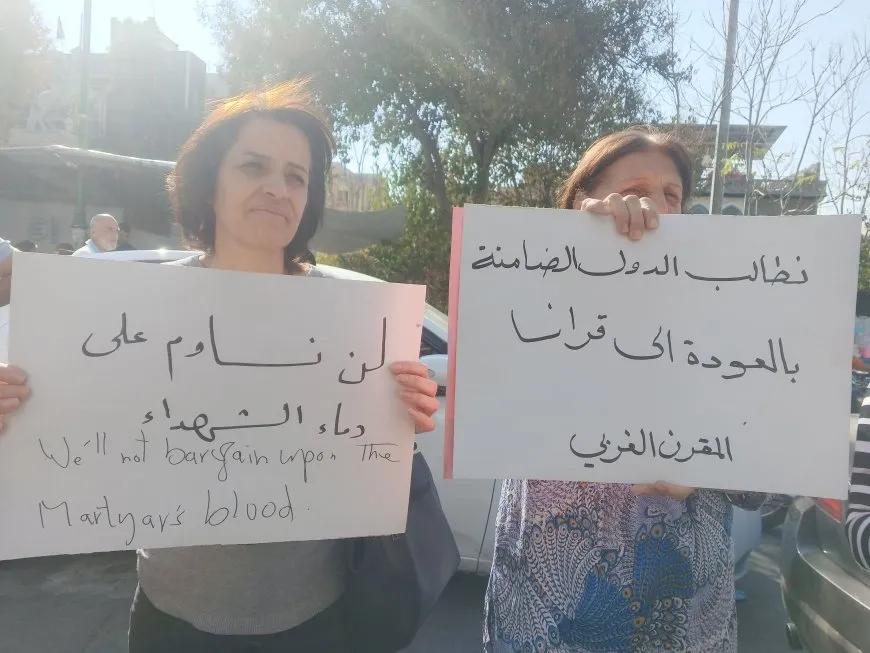 لن نساوم على
دماء الشهداء
We'll not bargain upon The
Martyar's blood.
نطالب الدول الضامنة
بالعودة الى قرانا
المقرن الغربي